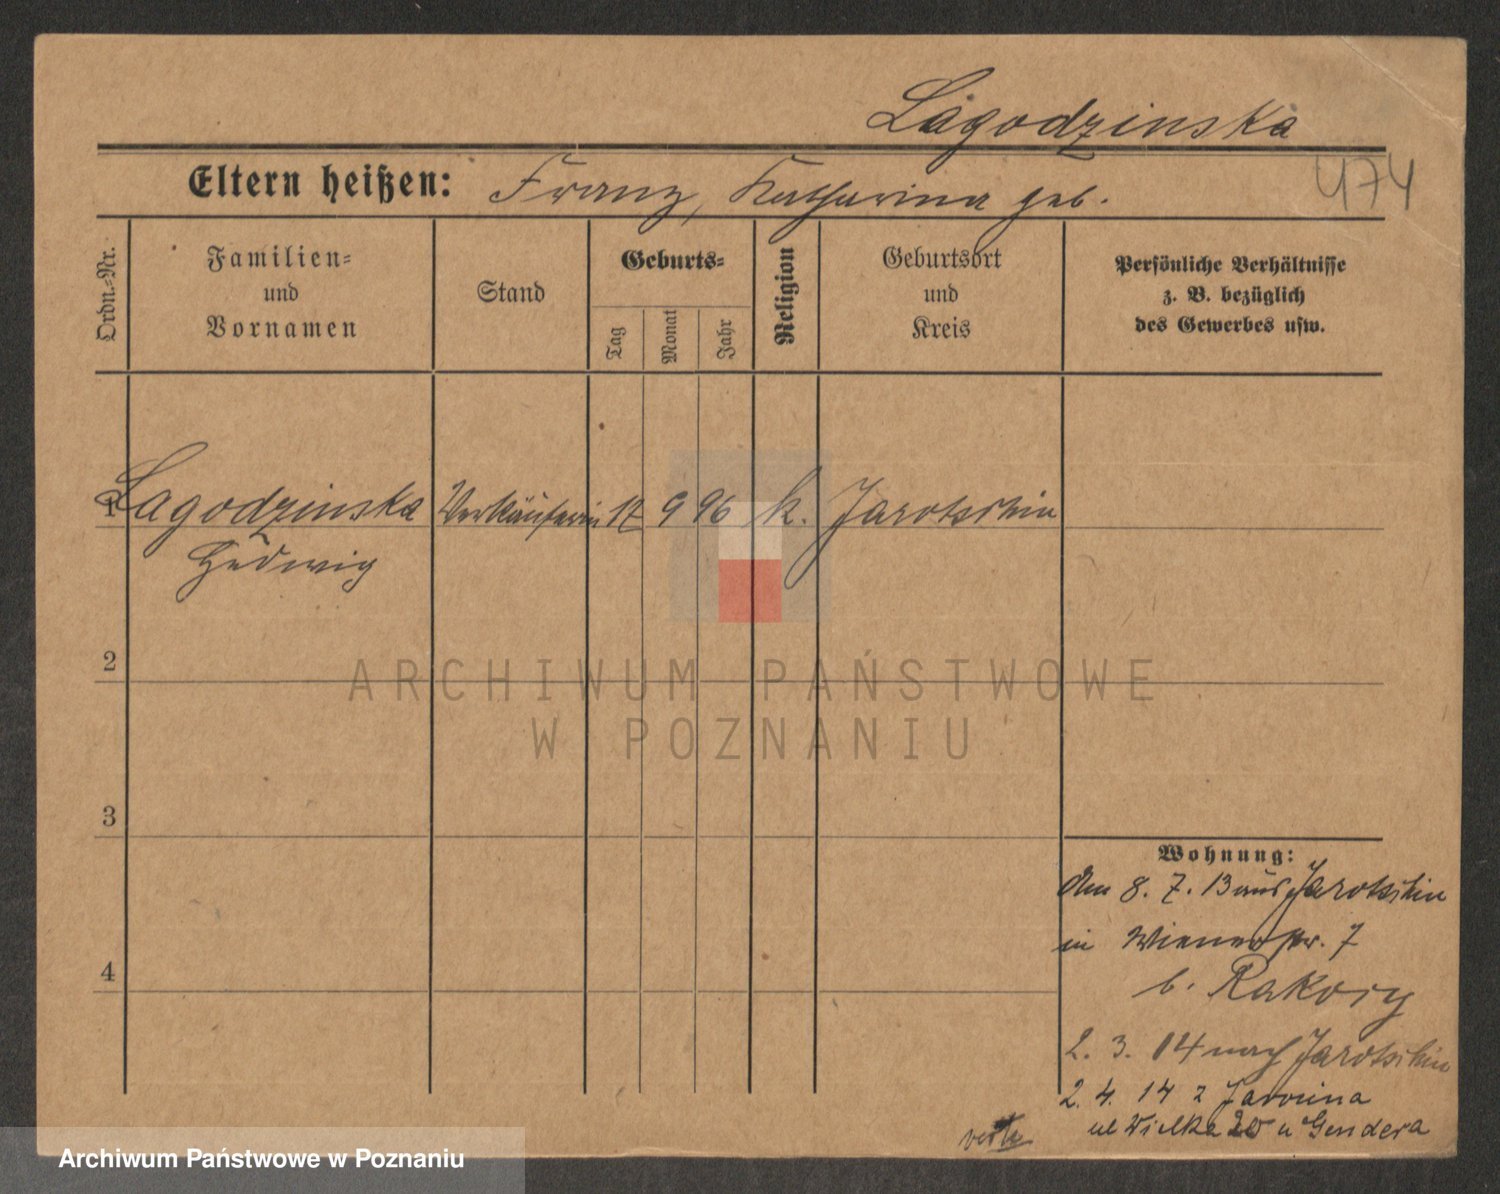 Lagodzinska
Eltern heißen: Franz, Katharina geb.
474
Ordn.-Nr.
Familien-
und
Vornamen
Stand
Geburts-
Tag
Monat
Jahr
Religion
Geburtsort
und
Kreis
Persönliche Verhältnisse
z. B. bezüglich
des Gewerbes usw.
1 Lagodzinska Verkäuferin 17 9 96 k. Jarotschin
Hedwig
2
3
4
Wohnung:
Am 8. 7. 13 aus Jarotschin
in Wienerstr. 7
b.
2. 3. 14 nach Jarotschin
2. 4. 14 z Jarocina
ul Wielka 20 u Gendera
ARCHIWUM PAŃSTWOWE
W POZNANIU
Archiwum Państwowe w Poznaniu